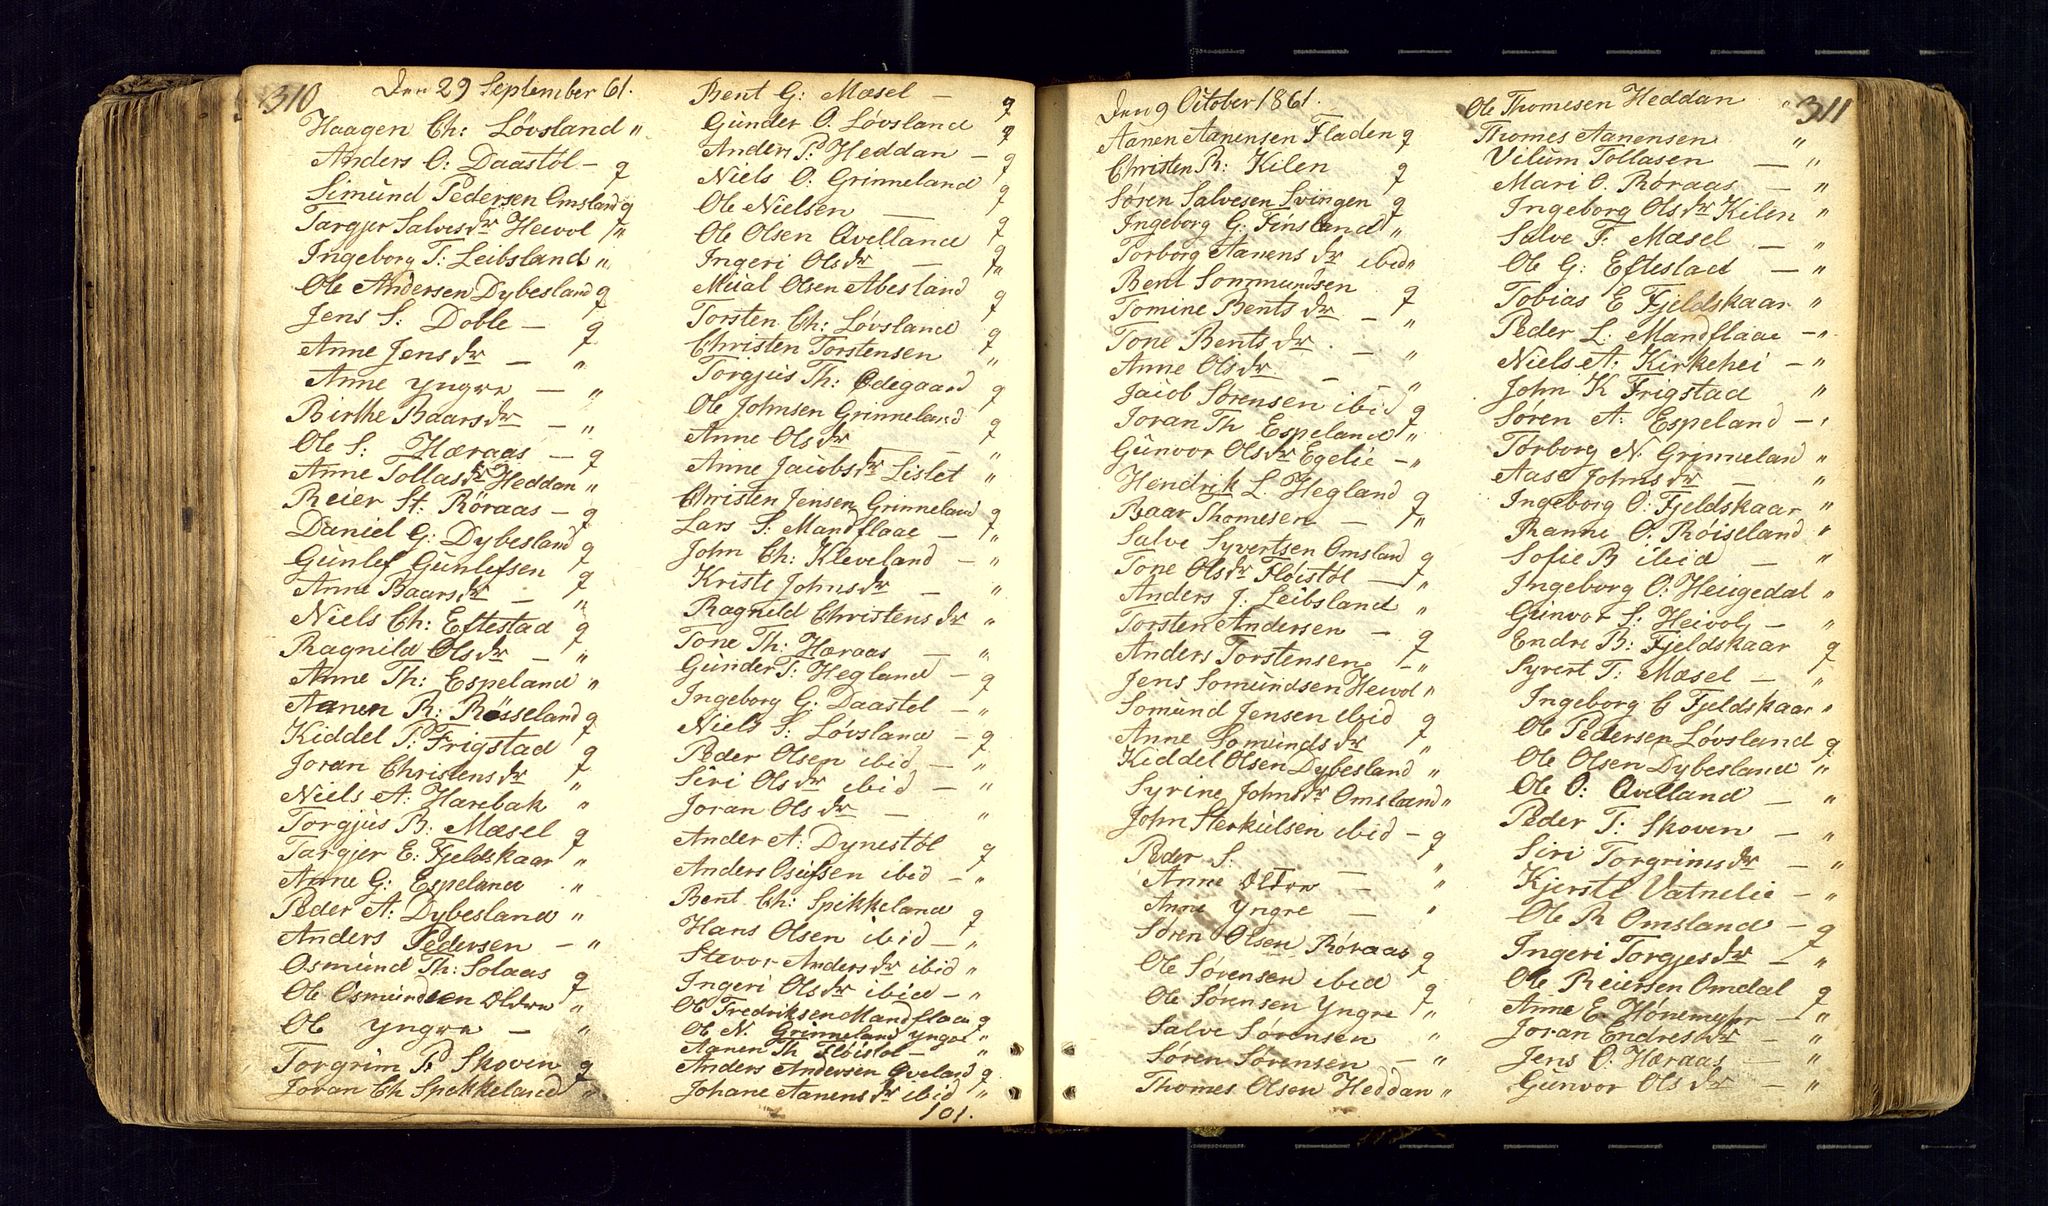 310
Den 29 September 61.
Haagen Ch: Lövsland "
Anders O: Daastöl – g
Simund Pedersen Omsland g
Targjer Salvesdr Heivol "
Ingeborg T: Leibsland "
Ole Andersen Dybesland g
Jens S: Doble – g
Anne Jensdr – "
Anne Yngre – "
Birthe Baarsdr – "
Ole S: Hæraas – g
Anne Tollasdr Heddan "
Reier St: Röraas – g
Daniel G: Dybesland g
Gunlef Gunlefsen g
Anne Baarsdr – "
Niels Ch: Eftestad g
Ragnild Olsdr – "
Anne Th: Espeland "
Aanen R: Röisseland g
Kiddel P: Frigstad g
Joran Christensdr "
Niels A: Harebak "
Torgjus B: Mæsel g
Targjer E: Fjeldskaar "
Anne G: Espeland "
Peder A: Dybesland "
Anders Pedersen – "
Osmund Th: Solaas g
Ole Osmundsen Oldre "
Ole Yngre – "
Torgrim P: Skoven g
Joran Ch Spikkeland "
Bent G: Mæsel – g
Gunder O. Lövsland g
Anders P: Heddan – g
Niels O: Grinneland g
Ole Nielsen –
Ole Olsen Qvelland g
Ingeri Olsdr – "
Mual Olsen Abesland g
Torsten Ch: Lövsland g
Christen Torstensen "
Torgjus Th: Ödegaard g
Ole Johnsen Grinneland g
Anne Olsdr – "
Anne Jacobsdr Lislet "
Christen Jensen Grinneland g
Lars S: Mandflaae – "
John Ch: Kleveland – "
Kristi Johnsdr – "
Ragnild Christensdr "
Tone Th: Hæraas – "
Gunder T: Hegland – g
Ingeborg G: Daastöl – "
Niels S: Lövsland – g
Peder Olsen ibid – "
Siri Olsdr ibid – "
Joran Olsdr – "
Ander A: Dynestöl g
Anders Osulfsen ibid – "
Bent Ch: Spikkeland g
Hans Olsen ibid – "
Stevor Andersdr ibid "
Ingeri Olsdr ibid – "
Ole Fredriksen Mandflaa g
Ole N. Grinneland Yngre "
Aanen Th Flöistöl – "
Anders Andersen Qveland g
Johane Aanensdr ibid "
101.
311
Den 9 October 1861.
Aanen Aanensen Fladen g
Christen Th: Kilen g
Søren Salvesen Svingen g
Ingeborg G: Finsland "
Torborg Aanensdr ibid "
Bent Sommundsen g
Tomine Bentsdr – "
Tone Bentsdr – "
Anne Olsdr – "
Jacob Sørensen ibid g
Joran Th Espeland "
Gunvor Olsdr Egelie – "
Hendrik L. Hegland g
Baar Thomesen – "
Salve Syvertsen Omsland g
Tone Olsdr Flöistöl – "
Anders J: Leibsland "
Torsten Andersen – g
Anders Torstensen – "
Jens Somundsen Heivol "
Somund Jensen ibid g
Anne Somundsdr "
Kiddel Olsen Dybesland "
Syrine Johnsdr Omsland "
John Sterkulsen ibid – g
Peder S. – "
Anne Oldre – "
Anne Yngre – "
Søren Olsen Röraas g
Ole Sørensen ibid g
Ole Sørensen Yngre "
Salve Sørensen "
Søren Sørensen – "
Thomes Olsen Heddan "
Ole Thomesen Heddan "
Thomes Aanensen "
Vilum Tollasen – "
Mari O. Röraas – "
Ingeborg Olsdr Kilen "
Salve F: Mæsel – "
Ole G: Eftestad – "
Tobias E Fjeldskaar "
Peder L. Mandflaae – "
Niels A: Kirkehei – "
John K Frigstad "
Søren A: Espeland – "
Torborg N. Grinneland "
Aase Johnsdr – "
Ingeborg O: Fjeldskaar "
Ranne O. Röiseland "
Sofie B ibid – "
Ingeborg O: Heiigedal "
Gunvor S: Heivol – "
Endre B: Fjeldskaar g
Syvert T: Mæsel – "
Ingeborg C Fjeldskaar "
Ole Pedersen Lövsland g
Ole Olsen Dybesland "
Ole O: Qvelland – "
Peder T: Skoven – "
Siri Torgrimsdr – "
Kjersti Vatnelie – "
Ole R Omsland – g
Ingeri Torgjesdr – "
Ole Reiersen Omdal g
Anne E Hönemyr – "
Joran Endresdr – "
Jens O. Hæraas – "
Gunvor Olsdr – "